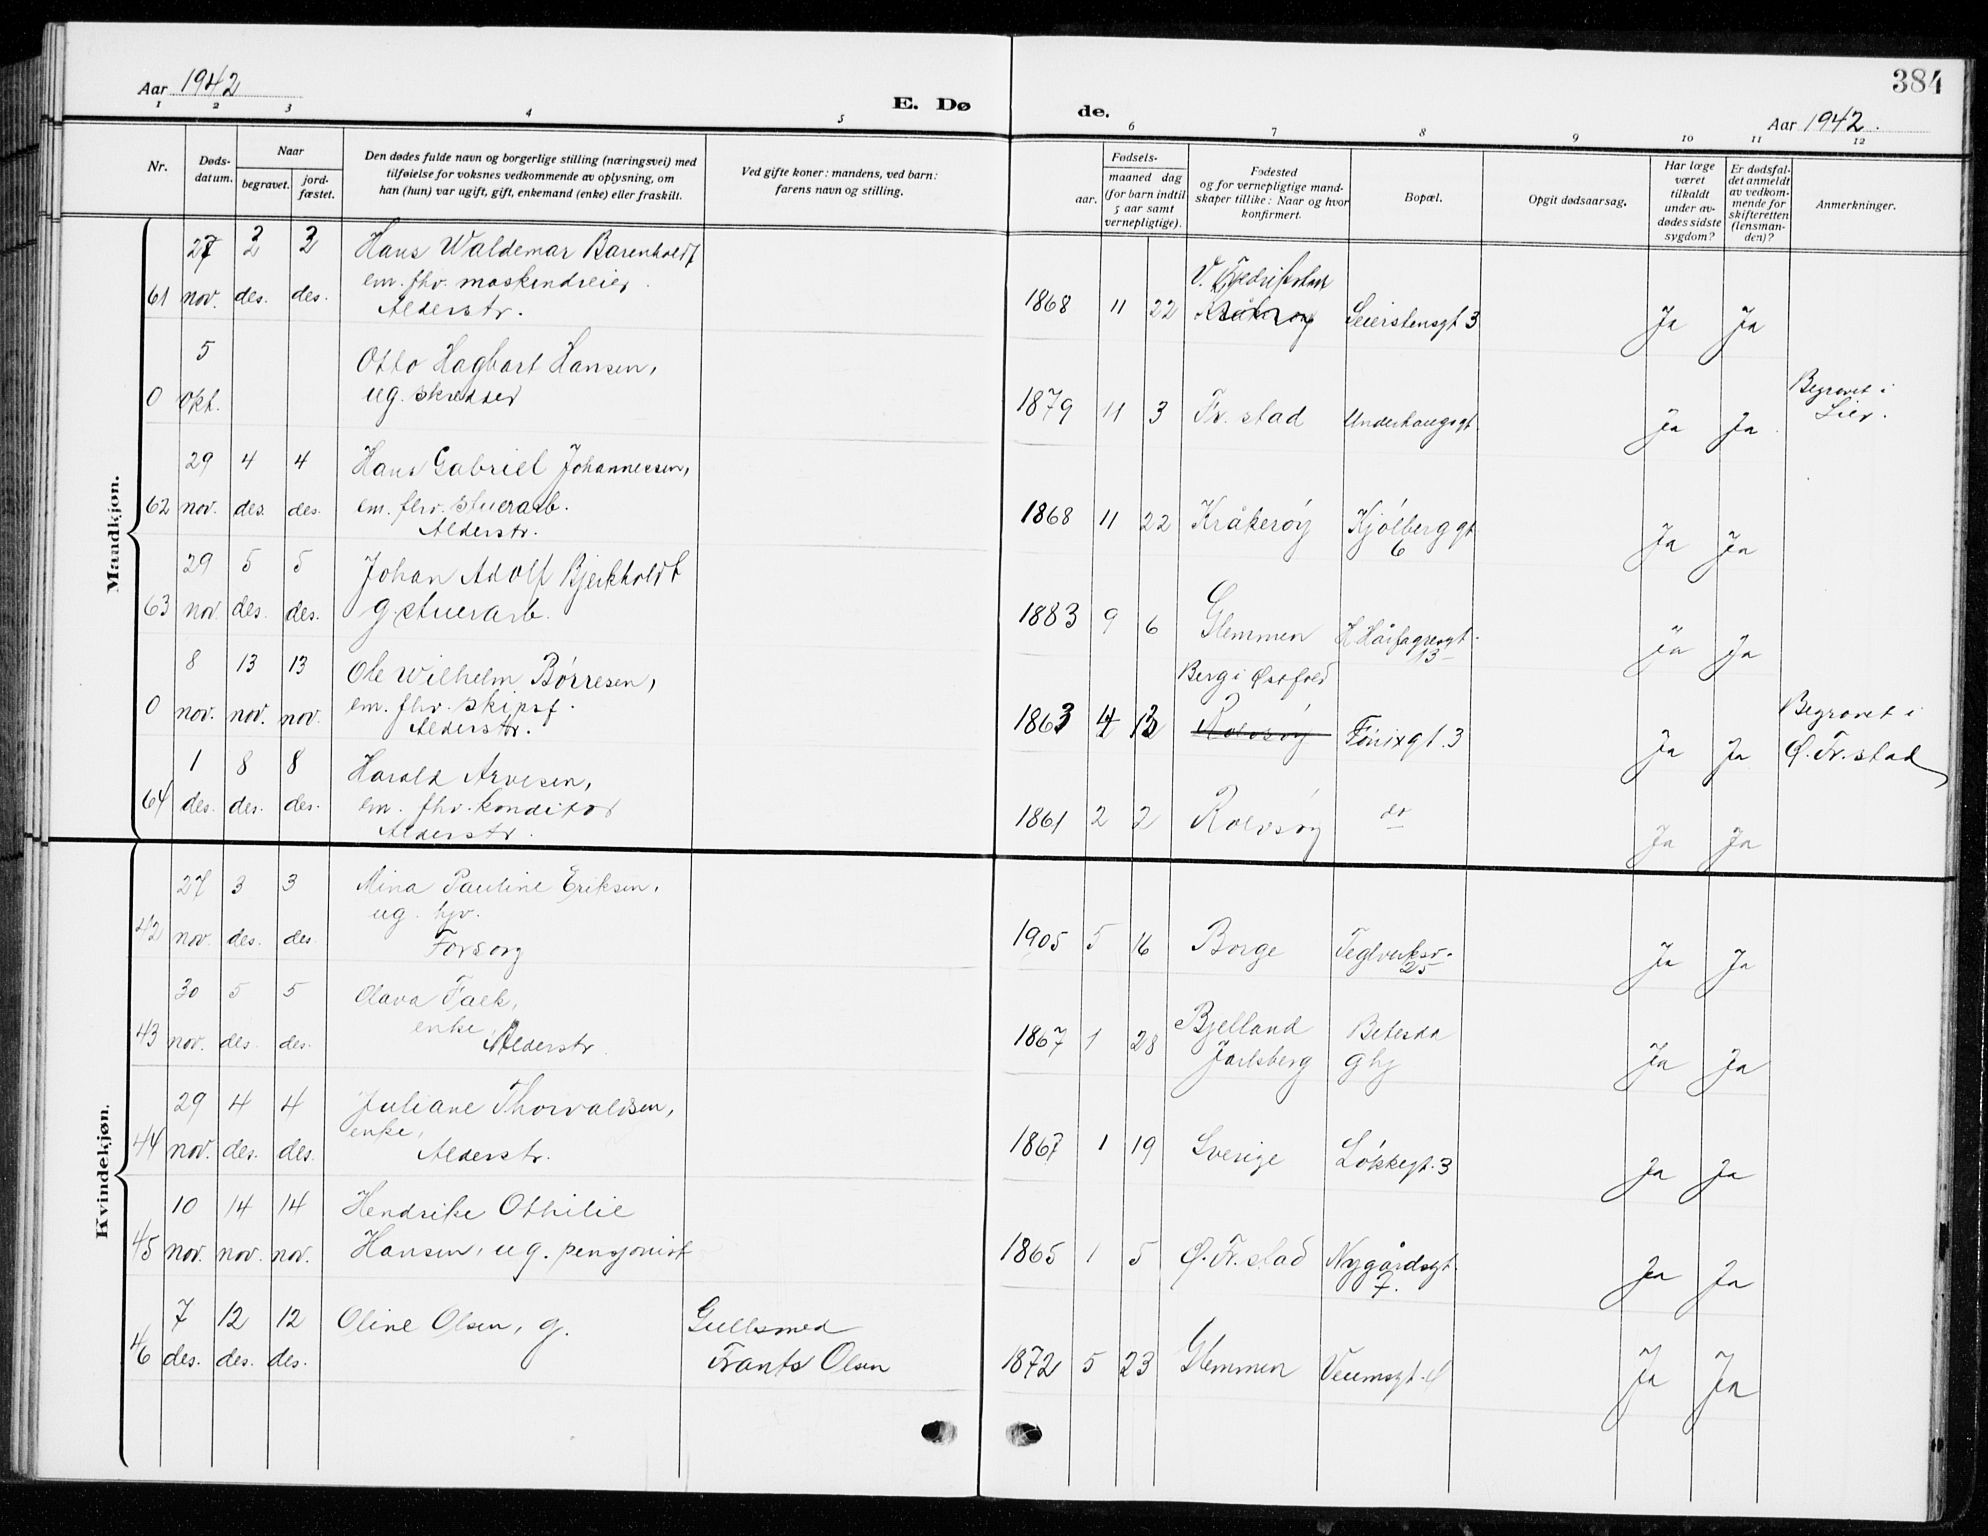 384
Aar 1942
E. Dø
de.
Aar 1942.
1 2 3 4 5 6 7 8 9 10 11 12
Nr.
Døds-
datum.
Naar
begravet.
jord-
fæstet.
Den dødes fulde navn og borgerlige stilling (næringsvei) med
tilføielse for voksnes vedkommende av oplysning, om
han (hun) var ugift, gift, enkemand (enke) eller fraskilt.
Ved gifte koner: mandens, ved barn:
farens navn og stilling.
Fødsels-
aar.
maaned dag
(for barn indtil
5 aar samt
vernepligtige).
Fødested
og for vernepligtige mand-
skaper tillike: Naar og hvor
konfirmert.
Bopæl.
Opgit dødsaarsag.
Har læge
været
tilkaldt
under av-
dødes sidste
sygdom?
Er dødsfal-
det anmeldt
av vedkom-
mende for
skifteretten
(lensman-
den)?
Anmerkninger.
Mandkjøn.
27 3 3 Hans Waldemar Barenholdt
em. fhv. maskindreier.
61 nov. des. des. Alderstr.
V. Fredrikstad
1868 11 22 Kråkerøy Leierstensgt 3 Ja Ja
5 Otto Hagbart Hansen,
0 okt. ug. skredder
1879 11 3 Fr. stad Underhaugsgt. Ja Ja
Begravet i
Lier.
29 4 4 Hans Gabriel Johannessen,
62 nov. des. des. em. fhv. stuerarb.
Alderstr.
1868 11 22 Kråkerøy Kjølberggt
6 Ja Ja
29 5 5 Johan Adolf Bjerkholdt
63 nov des. des. g. stuerarb.
1883 9 6 Glemmen H. Hårfagresgt.
13 Ja Ja
8 13 13 Ole Wilhelm Børresen,
0 nov. nov. nov. em. fhv. skipsf.
Alderstr.
Berg i Østfold
1863 4 13 Rolvsøy Fønixgt. 3 Ja Ja
Begravet i
Ø. Fr. stad
1 8 8 Harald Arvesen,
64 des. des. des. em. fhv. konditor
Alderstr.
1861 2 2 Rolvsøy do Ja Ja
Kvindekjøn.
27 3 3 Mina Pauline Eriksen,
ug. hjv.
42 nov. des. des. Forsorg
1905 5 16 Borge Teglverksv.
25 Ja Ja
30 5 5 Olava Falk,
enke,
43 nov. des. des. Alderstr.
1867 1 28 Bjelland
Jarlsberg
Betesda
ghj Ja Ja
29 4 4 Juliane Thorvaldsen,
enke,
44 nov. des. des. Alderstr.
1867 1 19 Sverige Løkkegt. 3 Ja Ja
10 14 14 Hendrike Othilie
45 nov. nov. nov. Hansen, ug. pensjonist
1865 1 5 Ø. Fr. stad Nygårdsgt.
7. Ja Ja
7 12 12 Oline Olsen, g. Gullsmed
46 des. des. des. Frants Olsen
1872 5 23 Glemmen Veumsgt. 4 Ja Ja